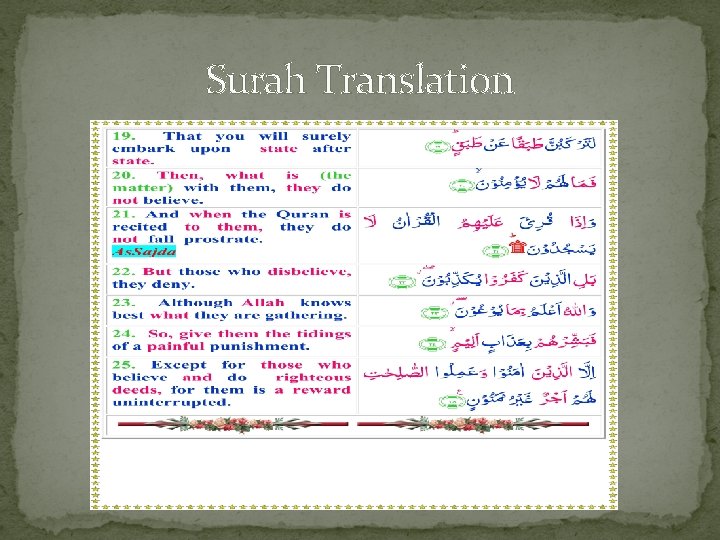 Surah Translation
19. That you will surely
embark upon state after
state.
لَتَرْكَبُنَّ طَبَقًا عَنْ طَبَقٍ ﴿١٩﴾
20. Then, what is (the
matter) with them, they do
not believe.
فَمَا لَهُمْ لَا يُؤْمِنُوْنَ ﴿٢٠﴾
21. And when the Quran is
recited to them, they do
not fall prostrate.
As.Sajda
وَاِذَا قُرِئَ عَلَيْهِمُ الْقُرْاٰنُ لَا
يَسْجُدُوْنَ ﴿٢١﴾
22. But those who disbelieve,
they deny.
بَلِ الَّذِيْنَ كَفَرُوْا يُكَذِّبُوْنَ ﴿٢٢﴾
23. Although Allah knows
best what they are gathering.
وَاللّٰهُ اَعْلَمُ بِمَا يُوْعُوْنَ ﴿٢٣﴾
24. So, give them the tidings
of a painful punishment.
فَبَشِّرْهُمْ بِعَذَابٍ اَلِيْمٍ ﴿٢٤﴾
25. Except for those who
believe and do righteous
deeds, for them is a reward
uninterrupted.
اِلَّا الَّذِيْنَ اٰمَنُوْا وَعَمِلُوا الصّٰلِحٰتِ
لَهُمْ اَجْرٌ غَيْرُ مَمْنُوْنٍ ﴿٢٥﴾